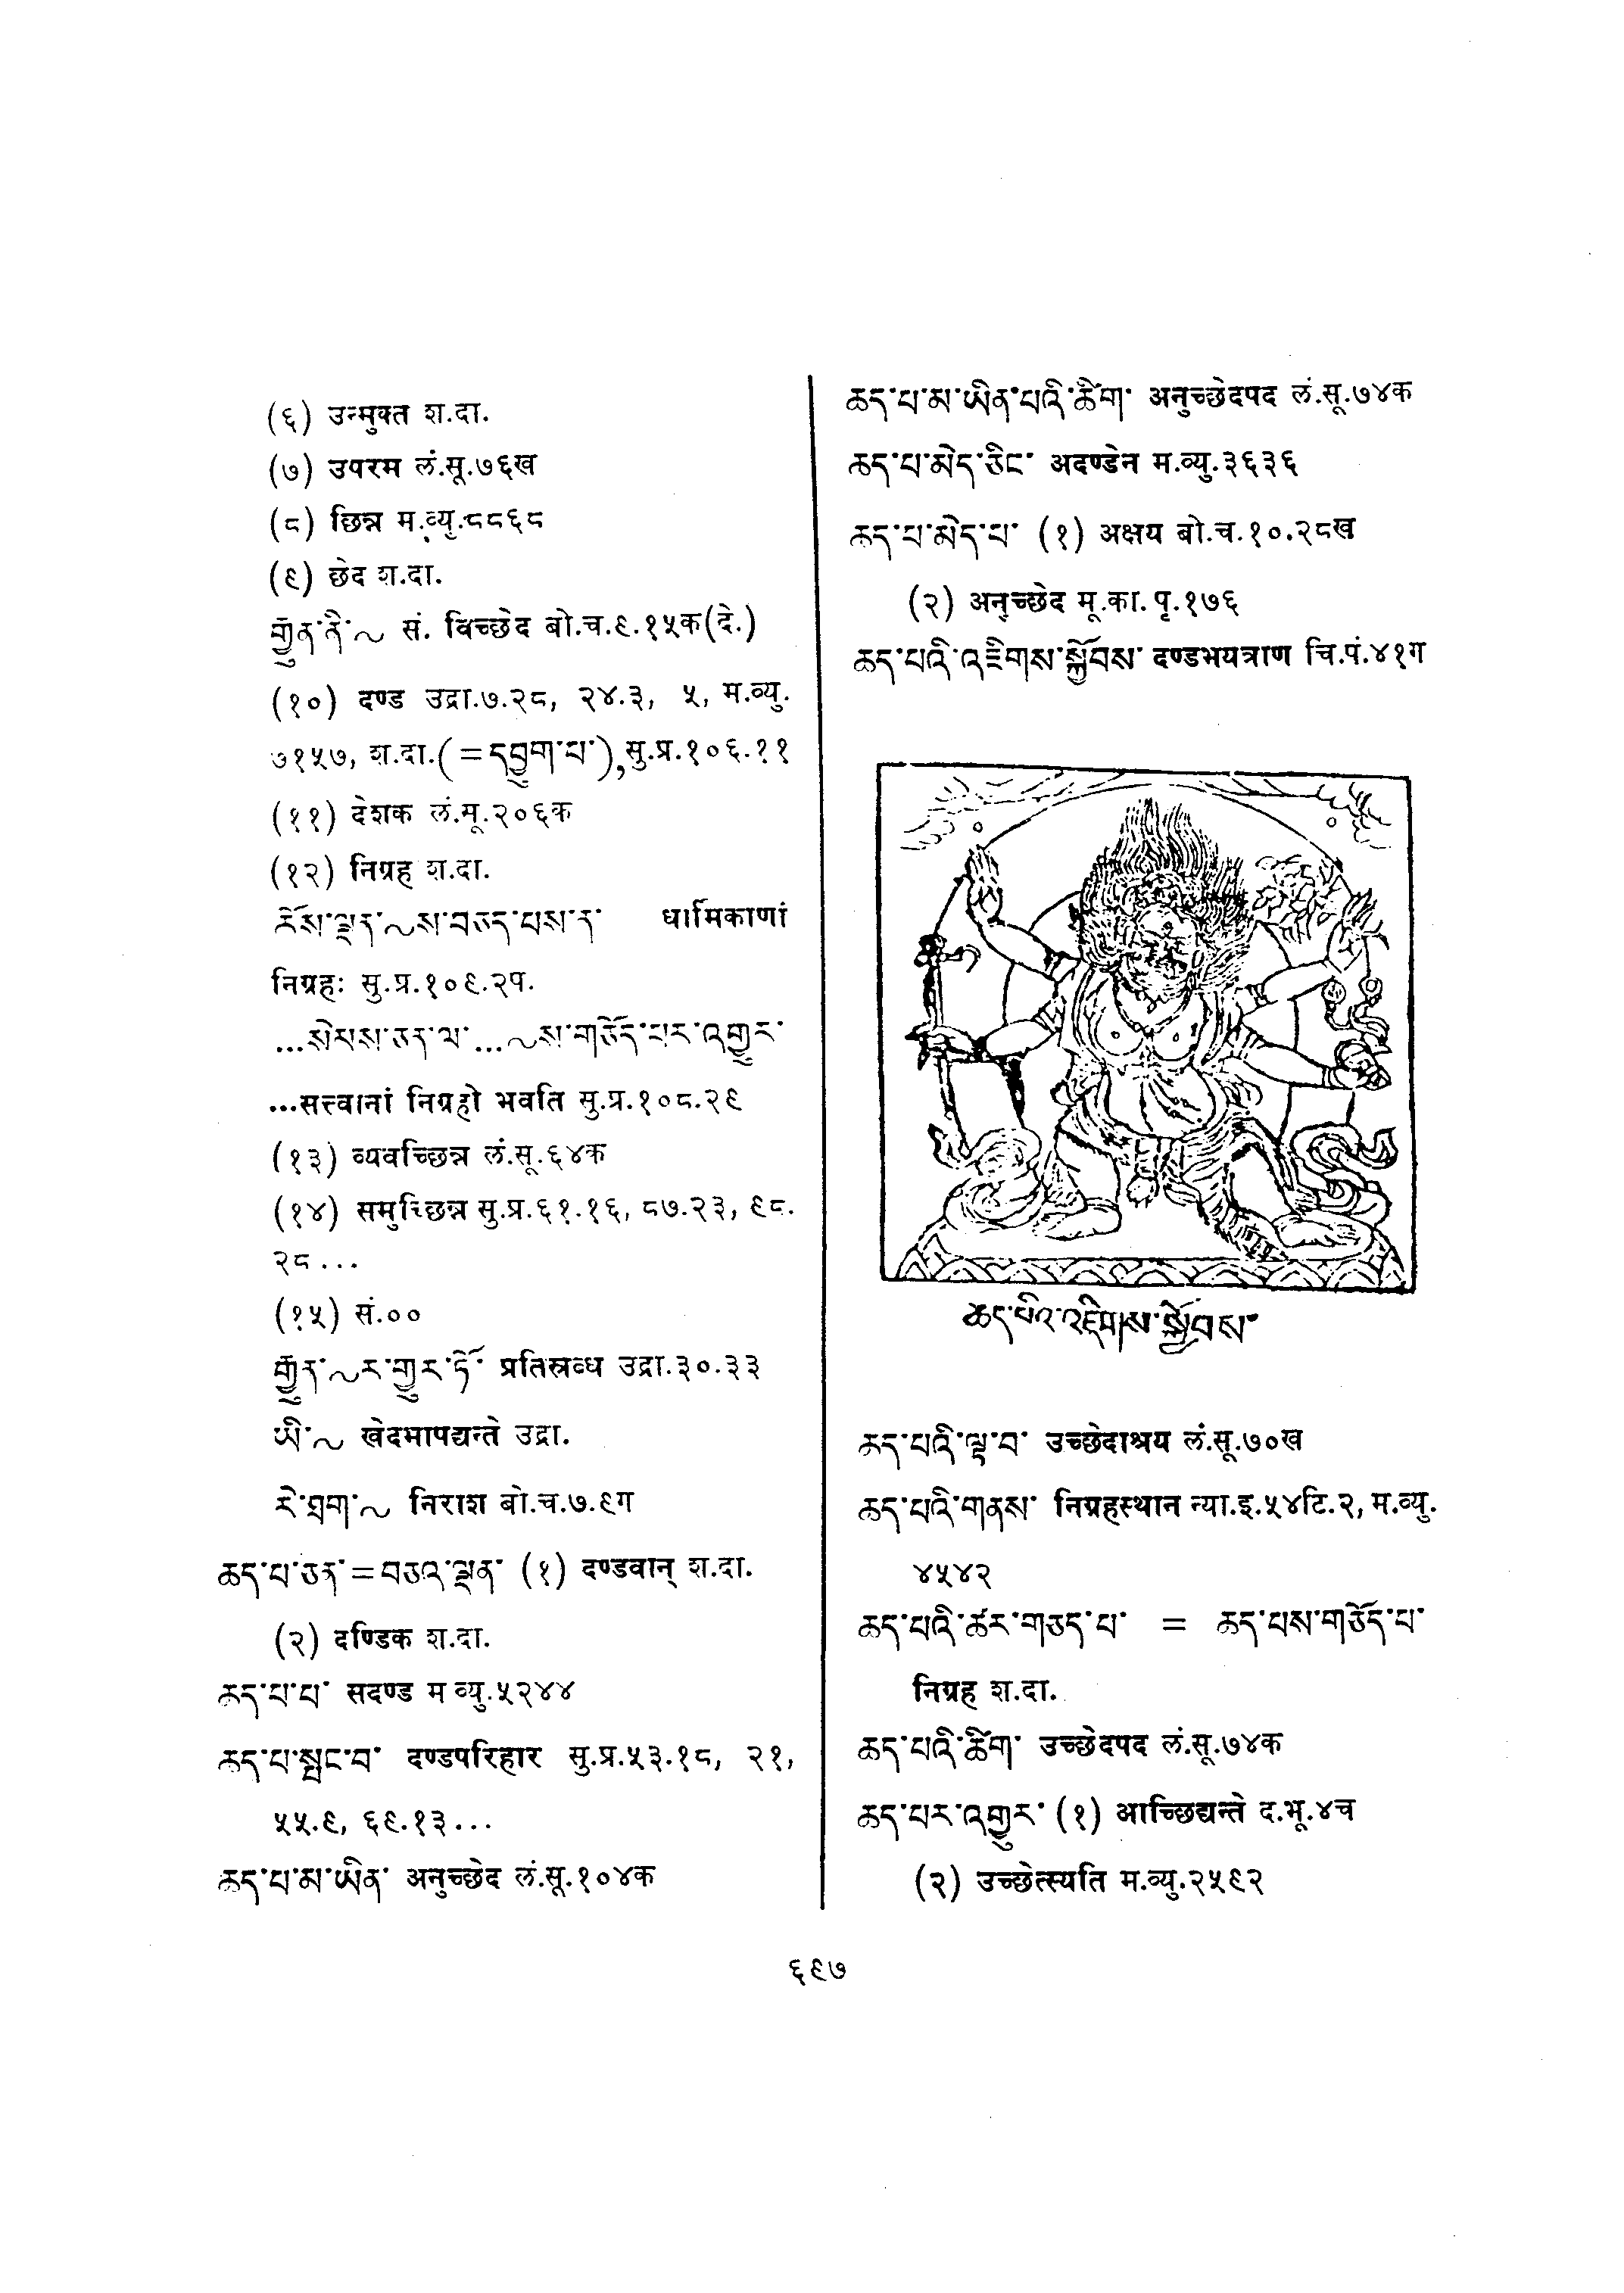 (६) उन्मुक्त श.दा.
(७) उपरम लं.सू.७६ख
(८) छिन्न म.व्यु.८८६८
(९) छेद श.दा.
རྒྱུན་ནི་~ सं. विच्छेद बो.च.९.१५क(दे.)
(१०) दण्ड उद्रा.७.२८, २४.३, ५, म.व्यु.
७१५७, श.दा.(=དབྱུག་པ་),सु.प्र.१०६.११
(११) देशक लं.सू.२०६क
(१२) निग्रह श.दा.
ངོས་ལྡན་~ས་བཅད་པས་ན་ धार्मिकाणां
निग्रहः सु.प्र.१०९.२प.
...སེམས་ཅན་ལ་...~ས་གཅོད་པར་འགྱུར་
...सत्त्वानां निग्रहो भवति सु.प्र.१०८.२९
(१३) व्यवच्छिन्न लं.सू.६४क
(१४) समुच्छिन्न सु.प्र.६१.१६, ८७.२३, ९८.
२८...
(१५) सं.००
རྒྱུན་~ར་གྱུར་ཏོ་ प्रतिस्रब्ध उद्रा.३०.३३
ཡི་~ खेदमापद्यन्ते उद्रा.
རེ་ཐག་~ निराश बो.च.७.९ग
ཆད་པ་ཅན་=བཅའ་ལྡན་ (१) दण्डवान् श.दा.
(२) दण्डिक श.दा.
ཆད་པ་པ་ सदण्ड म व्यु.५२४४
ཆད་པ་སྤང་བ་ दण्डपरिहार सु.प्र.५३.१८, २१,
५५.९, ६९.१३...
ཆད་པ་མ་ཡིན་ अनुच्छेद लं.सू.१०४क
ཆད་པ་མ་ཡིན་པའི་ཚིག་ अनुच्छेदपद लं.सू.७४क
ཆད་པ་མེད་ཅིང་ अदण्डेन म.व्यु.३६३६
ཆད་པ་མེད་པ་ (१) अक्षय बो.च.१०.२८ख
(२) अनुच्छेद मू.का.पृ.१७६
ཆད་པའི་འཇིགས་སྐྱོབས་ दण्डभयत्राण चि.पं.४१ग
ཆད་པའི་འཇིགས་སྐྱོབས་
ཆད་པའི་ལྟ་བ་ उच्छेदाश्रय लं.सू.७०ख
ཆད་པའི་གནས་ निग्रहस्थान न्या.इ.५४टि.२, म.व्यु.
४५४२
ཆད་པའི་ཚར་གཅད་པ་ = ཆད་པས་གཅོད་པ་
निग्रह श.दा.
ཆད་པའི་ཚིག་ उच्छेदपद लं.सू.७४क
ཆད་པར་འགྱུར་ (१) आच्छिद्यन्ते द.भू.४च
(२) उच्छेत्स्यति म.व्यु.२५९२
६९७